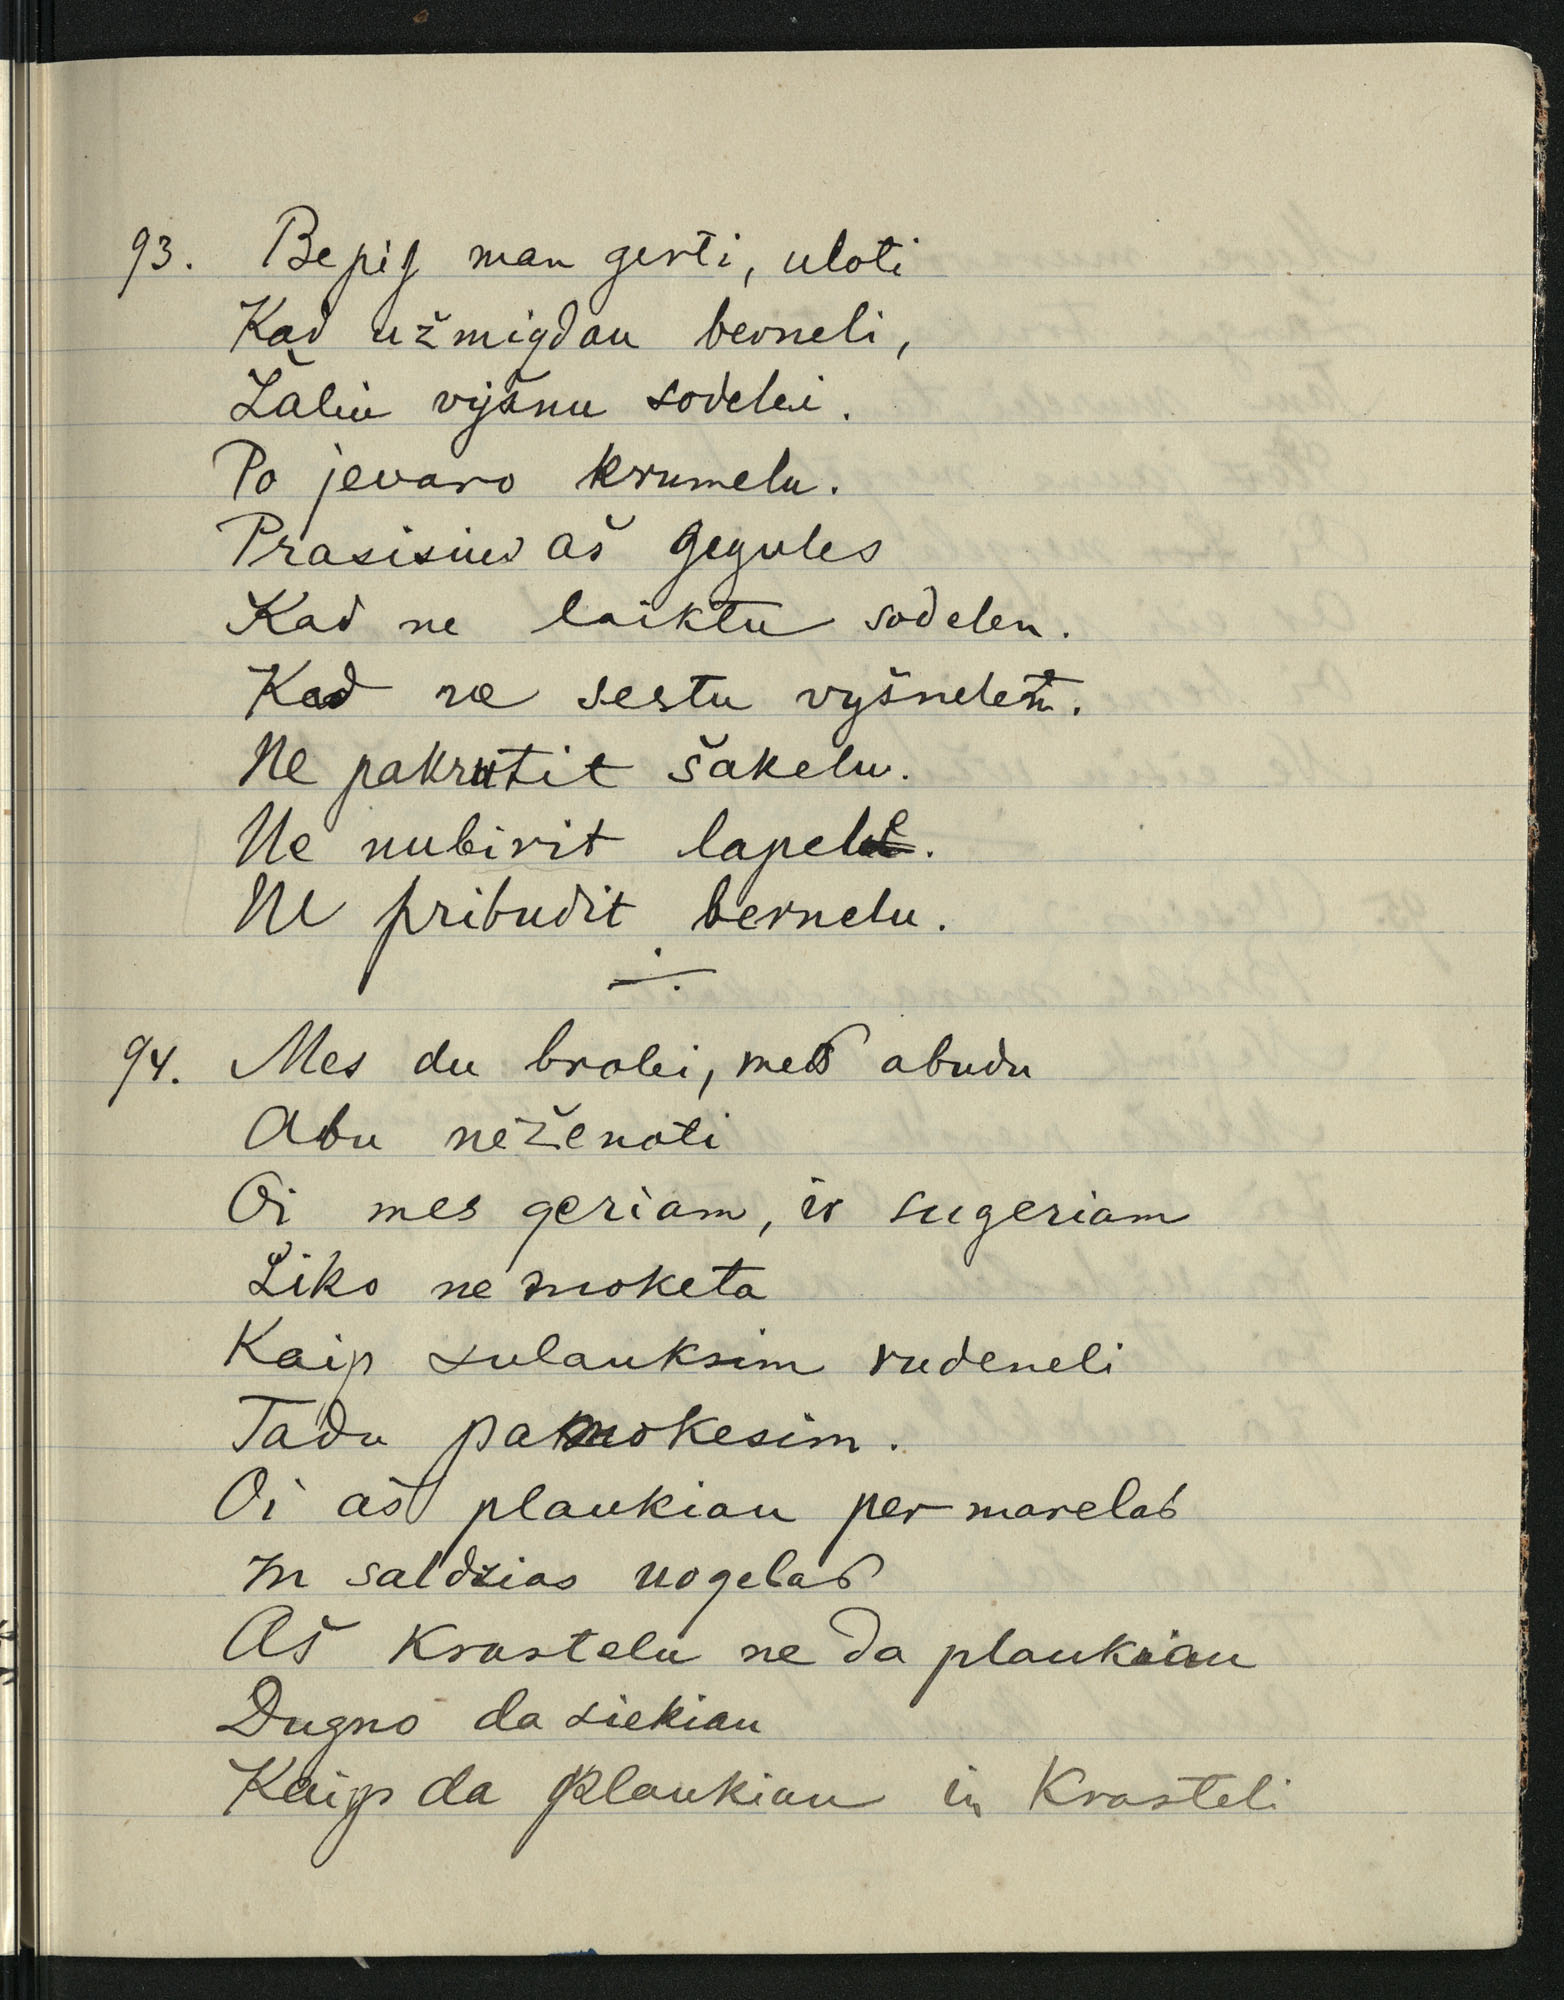 93. Bepig man gerti, uloti
Kad užmigdau berneli,
Žaliu vyšnu sodelei.
Po jevaro krumelu.
Prasisiu aš gegules
Kad ne laiktu sodelen.
Kad ne sestu vyšnelen.
Ne pakrutit šakelu.
Ne nubirit lapelu.
Ne pribudit bernelu.
94. Mes du brolei, mes abudu
Abu neženoti
Oi mes geriam, ir sugeriam
Liko ne moketa
Kaip sulauksim rudeneli
Tadu pamokesim.
Oi aš plaukiau per marelas
In saldžias uogelas
Aš Krastelu ne da plaukiau
Dugno da siekiau
Kaip da plaukiau in Krasteli